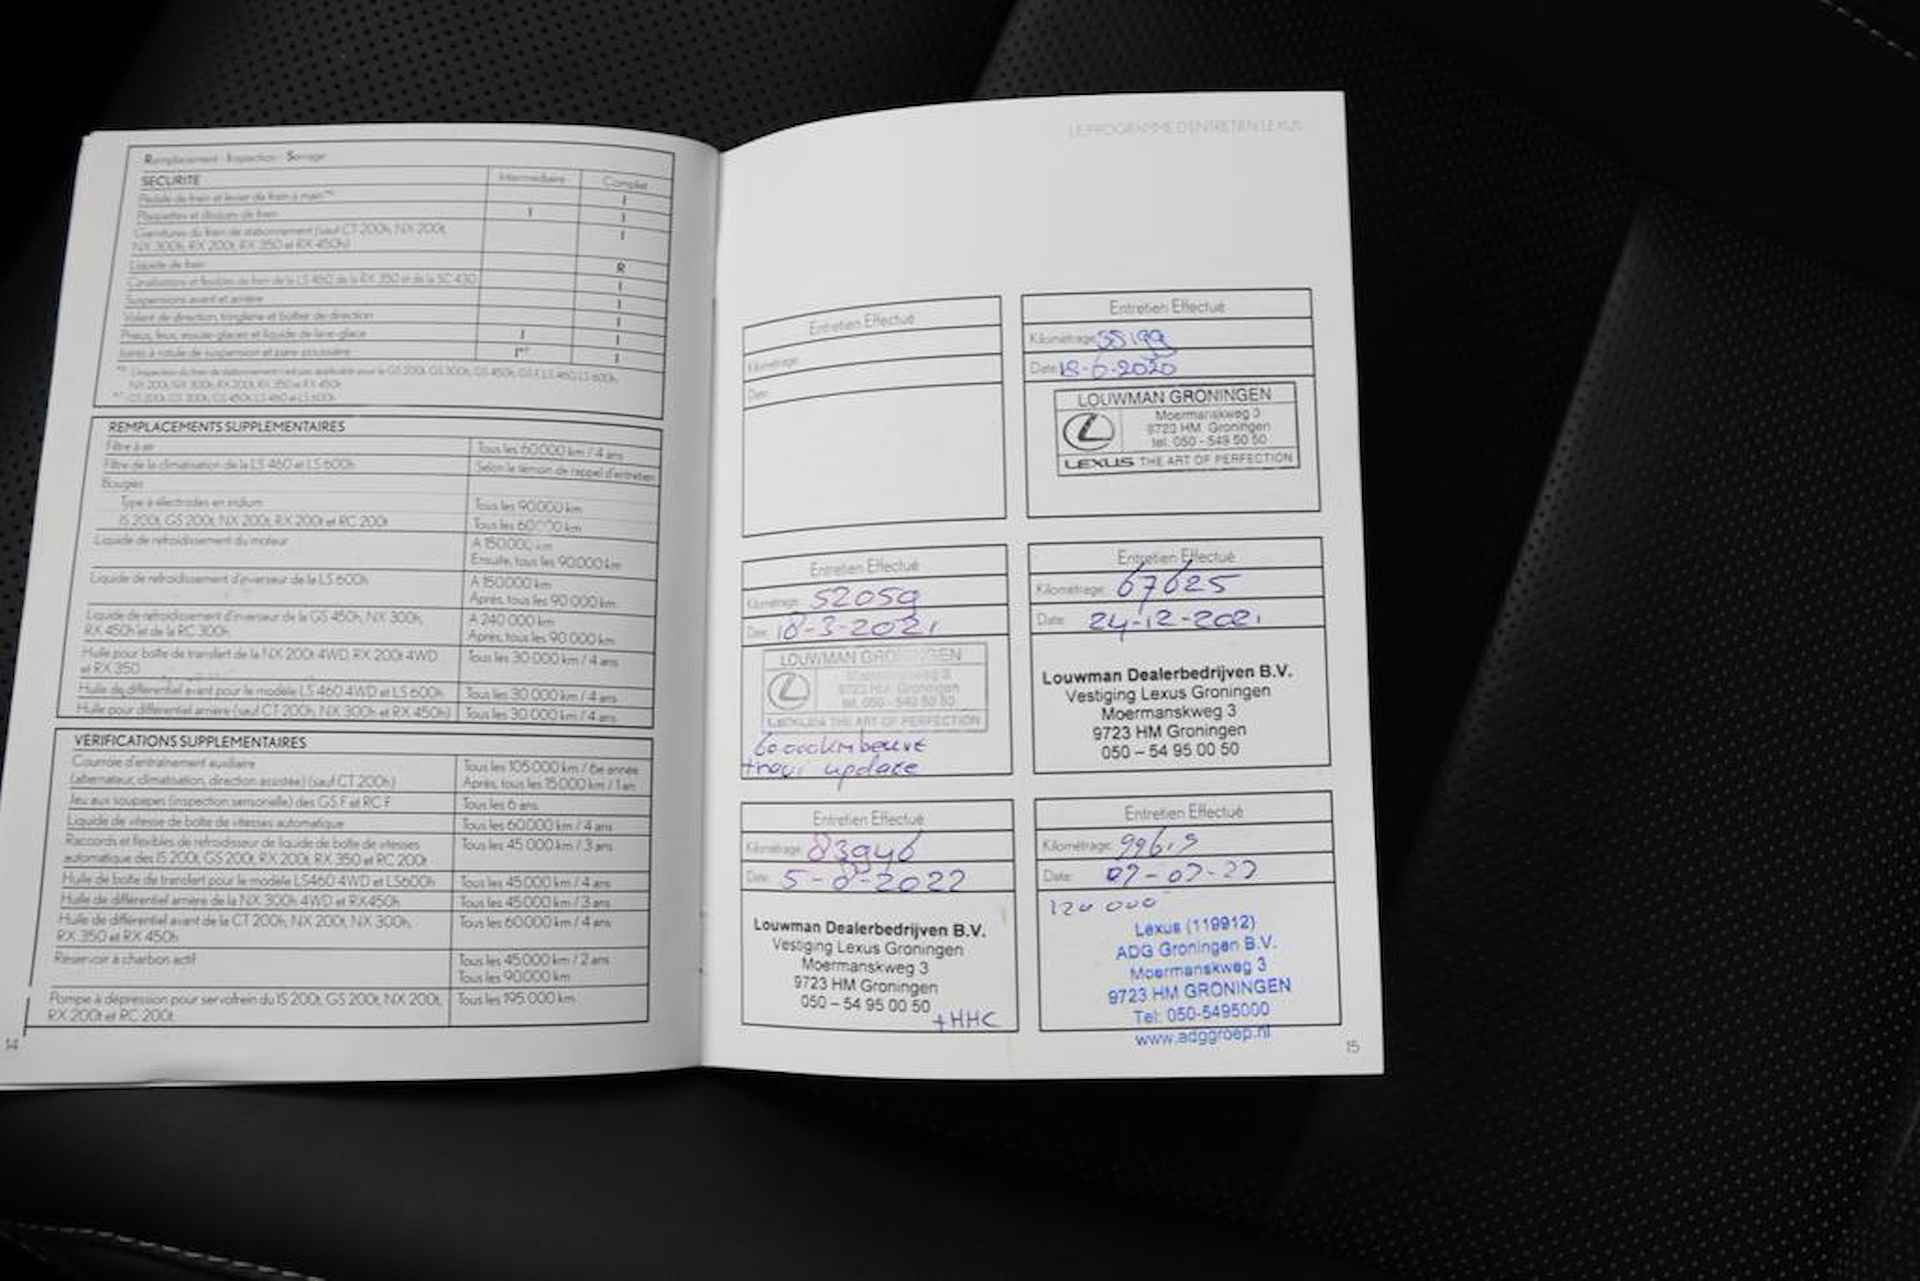 Remplacement - Inspection - Serrage
SECURITE Intermédiaire Complet
Pédale de frein et levier de frein à main I
Plaquettes et disques de frein I I
Garnitures du frein de stationnement (sauf CT 200h, NX 200t, I
NX 300h, RX 200t, RX 350 et RX 450h)
Liquide de frein R
Canalisations et flexibles de frein de la LS 460, de la RX 350 et de la SC 430 I
Suspensions avant et arrière I
Volant de direction, tringlerie et boîtier de direction I
Pneus, feux, essuie-glaces et liquide de lave-glace I I
Joints à rotule de suspension et pare-poussière I I
REMPLACEMENTS SUPPLEMENTAIRES
Filtre à air Tous les 60.000 km / 4 ans
Filtre de la climatisation de la LS 460 et LS 600h Selon le témoin de rappel d'entretien
Bougies
Type à électrodes en iridium Tous les 90.000 km
IS 200t, GS 200t, NX 200t, RX 200t et RC 200t Tous les 60.000 km
Liquide de refroidissement du moteur A 150.000 km
Ensuite, tous les 90.000 km
Liquide de refroidissement d'inverseur de la LS 600h A 150.000 km
Après, tous les 90 000 km
Liquide de refroidissement d'inverseur de la GS 450h, NX 300h, A 240 000 km
RX 450h et de la RC 300h Après, tous les 90 000 km
Huile pour boîte de transfert de la NX 200t 4WD, RX 200t 4WD Tous les 30 000 km / 4 ans
et RX 350
Huile de différentiel avant pour le modèle LS 460 4WD et LS 600h Tous les 30 000 km / 4 ans
Huile pour différentiel arrière (sauf CT 200h, NX 300h et RX 450h) Tous les 30 000 km / 4 ans
VERIFICATIONS SUPPLEMENTAIRES
Courroie d'entraînement auxiliaire Tous les 105 000 km / 6e année
(alternateur, climatisation, direction assistée) (sauf CT 200h) Après, tous les 15 000 km / 1 an
Jeu aux soupapes (inspection sensorielle) des GS F et RC F Tous les 6 ans
Liquide de vitesse de boîte de vitesses automatique Tous les 60 000 km / 4 ans
Raccords et flexibles de refroidisseur de liquide de boîte de vitesses Tous les 45 000 km / 3 ans
automatique des IS 200t, GS 200t, RX 200t, RX 350 et RC 200t
Huile de boîte de transfert pour le modèle LS460 4WD et LS600h Tous les 45 000 km / 4 ans
Huile de différentiel arrière de la NX 300h 4WD et RX450h Tous les 45 000 km / 3 ans
Huile de différentiel avant de la CT 200h, NX 200t, NX 300h, Tous les 60 000 km / 4 ans
RX 350 et RX 450h
Réservoir à charbon actif Tous les 45 000 km / 2 ans
Tous les 90.000 km
Pompe à dépression pour servofrein du IS 200t, GS 200t, NX 200t, Tous les 195 000 km
RX 200t et RC 200t
14
LE PROGRAMME D'ENTRETIEN LEXUS
Entretien Effectué
Kilométrage:
Date:
Entretien Effectué
Kilométrage: 55199
Date: 18-6-2020
LOUWMAN GRONINGEN
Moermanskweg 3
9723 HM Groningen
tel. 050 - 549 50 50
LEXUS THE ART OF PERFECTION
Entretien Effectué
Kilométrage: 52059
Date: 18-3-2021
LOUWMAN GRONINGEN
9723 HM Groningen
tel. 050 - 549 50 50
LEXUS THE ART OF PERFECTION
60000km beurt
+navi update
Entretien Effectué
Kilométrage: 67625
Date: 24-12-2021
Louwman Dealerbedrijven B.V.
Vestiging Lexus Groningen
Moermanskweg 3
9723 HM Groningen
050 – 54 95 00 50
Entretien Effectué
Kilométrage: 83946
Date: 5-8-2022
Louwman Dealerbedrijven B.V.
Vestiging Lexus Groningen
Moermanskweg 3
9723 HM Groningen
050 – 54 95 00 50
+HHC
Entretien Effectué
Kilométrage:
Date:
120 000
Lexus (119912)
ADG Groningen B.V.
Moermanskweg 3
9723 HM GRONINGEN
Tel: 050-5495000
www.adggroep.nl
15